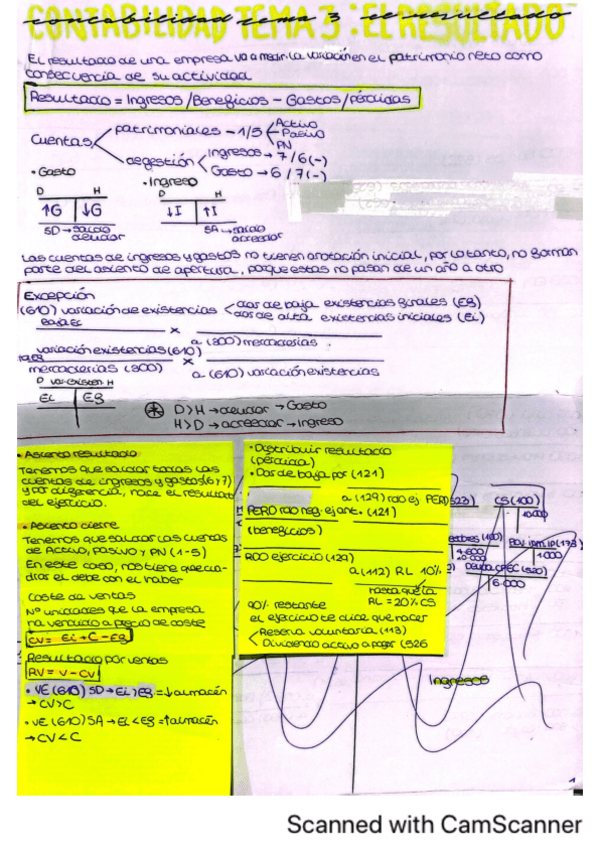 CONTABILIDAD TEMA 3: EL RESULTADO
contabilidad tema 3 el resultado
El resultado de una empresa va a medir la variación en el patrimonio neto como
consecuencia de su actividad
Resultado = Ingresos/Beneficios - Gastos/pérdidas
Cuentas
patrimoniales - 1/5
Activo
Pasivo
PN
de gestión
Ingresos → 7/6(-)
Gasto → 6/7(-)
• Gasto
• Ingreso
D H
D H
↑G ↓G
↓I ↑I
SD → saldo deudor
SA → saldo acreedor
Las cuentas de ingresos y gastos no tienen anotación inicial, por lo tanto, no forman
parte del asiento de apertura, porque estas no pasan de un año a otro
Excepción
(610) variación de existencias
dar de baja existencias finales (EF)
dar de alta existencias iniciales (Ei)
Baja Ei
x
a (300) mercaderías
variación existencias (610)
x
mercaderías (300)
a (610) variación existencias
D var. existen. H
Ei EF
* D>H → deudor → Gasto
H>D → acreedor → ingreso
• Asiento resultado
Tenemos que saldar todas las
cuentas de ingresos y gastos (6 y 7)
y por diferencia, nace el resultado
del ejercicio.
• Asiento cierre
Tenemos que saldar las cuentas
de Activo, pasivo y PN (1-5)
En este caso, nos tiene que cua-
drar el debe con el haber
Coste de ventas
Nº unidades que la empresa
ha vendido a precio de coste
CV = Ei + C - EF
Resultado por ventas
RV = V - CV
• VE (610) SD → Ei > EF = ↓almacén
→ CV>C
• VE (610) SA → Ei < EF = ↑almacén
→ CV<C
• Distribuir resultado
(pérdida)
• Dar de baja por (121)
a (129) rdo ej PERD
PERD rdo neg. ej ant. (121)
(beneficios)
RDO ejercicio (129)
a (112) RL 10%
hasta que la
RL = 20% CS
90% restante
el ejercicio te dice que hacer
Reserva voluntaria (113)
Dividendo activo a pagar (526
523)
CS (100)
1.000
6.000
Ingresos
1
Scanned with CamScanner